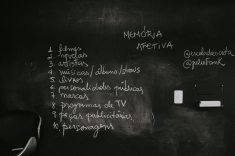 MEMÓRIA
AFETIVA
1. filmes
2. novelas
3. artistas
4. músicas / álbuns / shows
5. livros
6. personalidades públicas
7. marcas
8. programas de TV
9. peças publicitárias
10. personagens